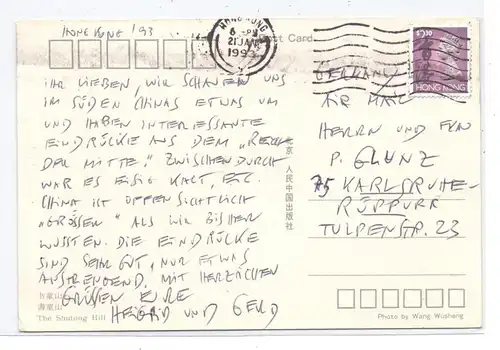 HONG KONG '93
Post Card
HONG KONG
6 - PM
21 JAN
1993
$2.30
香港
HONG KONG
IHR LIEBEN, WIR SCHAUEN UNS
IM SÜDEN CHINAS ETWAS UM
UND HABEN INTERESSANTE
EINDRÜCKE AUS DEM „REICH
DER MITTE". ZWISCHENDURCH
WAR ES EISIG KALT, ETC.
CHINA IST OFFENSICHTLICH
„GRÖSSER" ALS WIR BISHER
WUSSTEN. DIE EINDRÜCKE
SIND SEHR GUT, NUR ETWAS
ANSTRENGEND. MIT HERZLICHEN
GRÜSSEN EURE
HEIDRID UND GERD
GERMANY
AIR MAIL
HERRN UND FRAU
P. GLUNZ
75 KARLSRUHE-
RÜPPURR
TULPENSTR. 23
北京 人民中国出版社
书童山
壽童山
The Shutong Hill
Photo by Wang Wusheng